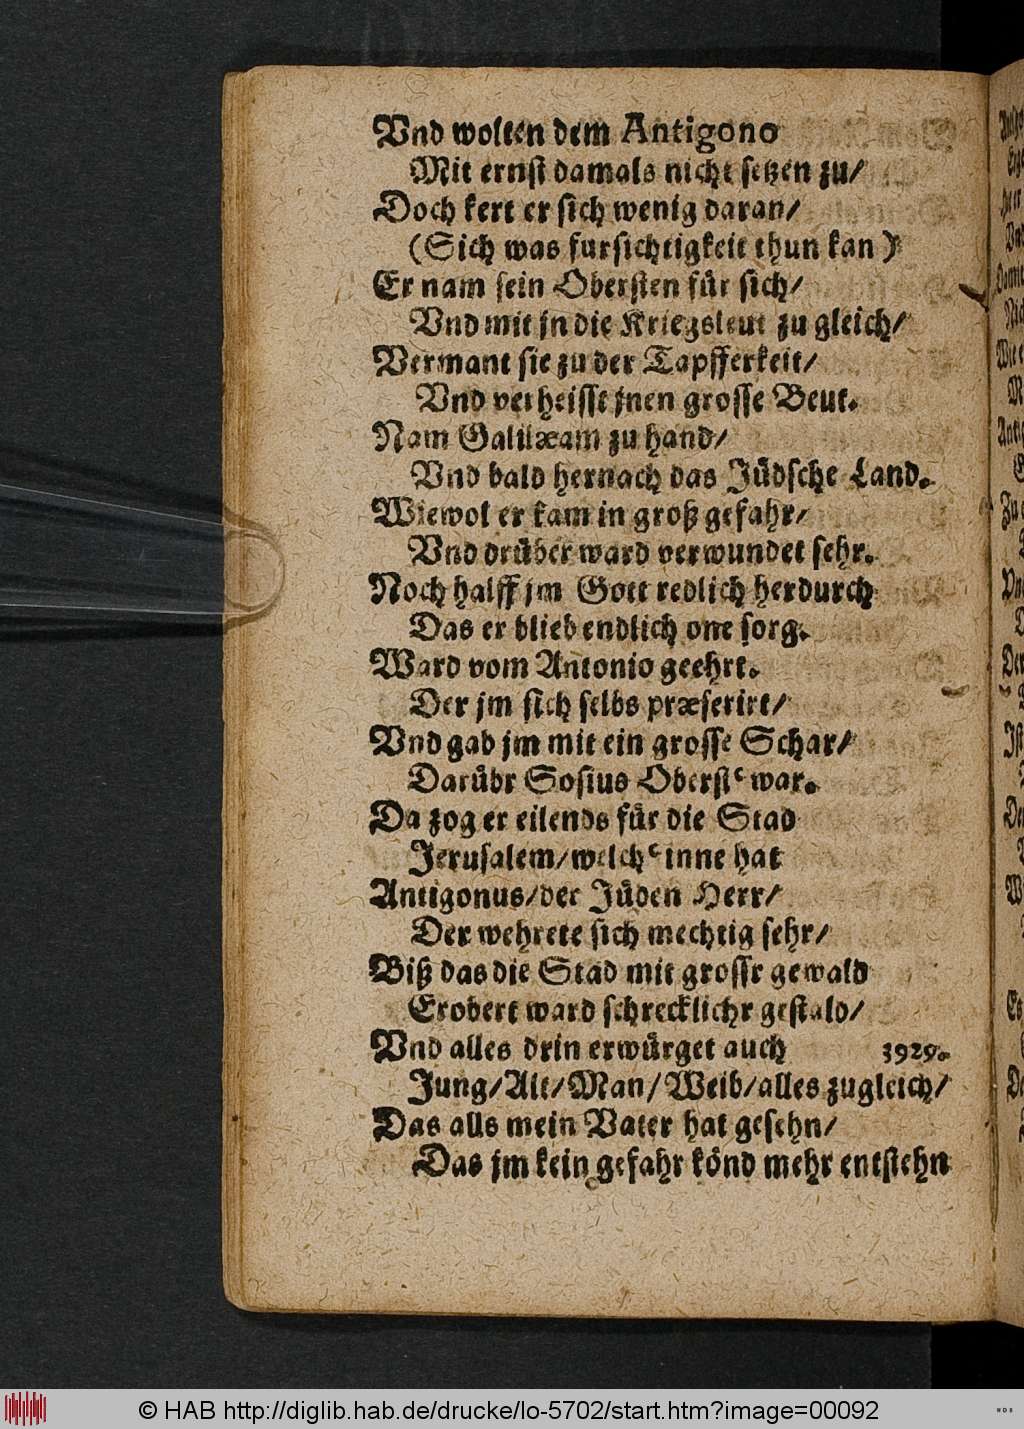 Vnd wolten dem Antigono
Mit ernst damals nicht setzen zu/
Doch kert er sich wenig daran/
(Sich was fursichtigkeit thun kan)
Er nam sein Obersten für sich/
Vnd mit jn die Kriegsleut zu gleich/
Vermant sie zu der Tapfferkeit/
Vnd verheisst jnen grosse Beut.
Nam Galilæam zu hand/
Vnd bald hernach das Jüdsche Land.
Wiewol er kam in groß gefahr/
Vnd drüber ward verwundet sehr.
Noch halff jm Gott redlich herdurch
Das er blieb endlich one sorg.
Ward vom Antonio geehrt.
Der jm sich selbs præferirt/
Vnd gab jm mit ein grosse Schar/
Darübr Sosius Oberst' war.
Da zog er eilends für die Stad
Jerusalem/welch' inne hat
Antigonus/der Jüden Herr/
Der wehrete sich mechtig sehr/
Biß das die Stad mit grossr gewald
Erobert ward schrecklichr gestald/
Vnd alles drin erwürget auch 3929.
Jung/Alt/Man/Weib/alles zugleich/
Das alls mein Vater hat gesehn/
Das jm kein gefahr könd mehr entstehn
© HAB http://diglib.hab.de/drucke/lo-5702/start.htm?image=00092